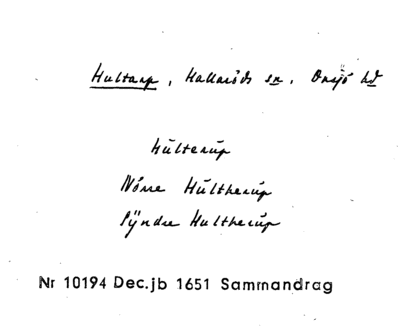 Hultarp, Hallaröds sn, Onsjö hd
Húlterúp
Nörre Húltherúp
Syndre Hultherúp
Nr 10194 Dec.jb 1651 Sammandrag